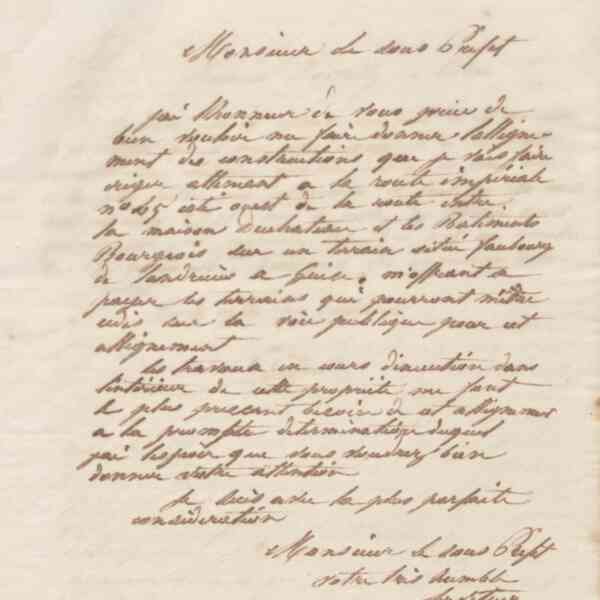 Monsieur le sous Préfet
j'ai l'honneur de vous prier de
bien vouloir me faire donner l'alligne-
ment des constructions que je vais faire
eriger attenant a la route impériale
n° 45 coté ouest de la route entre
la maison Duchateau et les Batiments
Bourgeois sur un terrain situé faubourg
de landrecies a Guise, m'offrant a
payer les terrains qui pourront m'être
cédés sur la voie publique pour cet
allignement
les travaux en cours d'execution dans
l'intérieur de cette propriété me font
le plus pressant besoin de cet allignement
a la prompte détermination duquel
j'ai l'espoir que vous voudrez bien
donner votre attention
Je suis avec la plus parfaite
considération
Monsieur le sous Préfet
votre très humble
serviteur